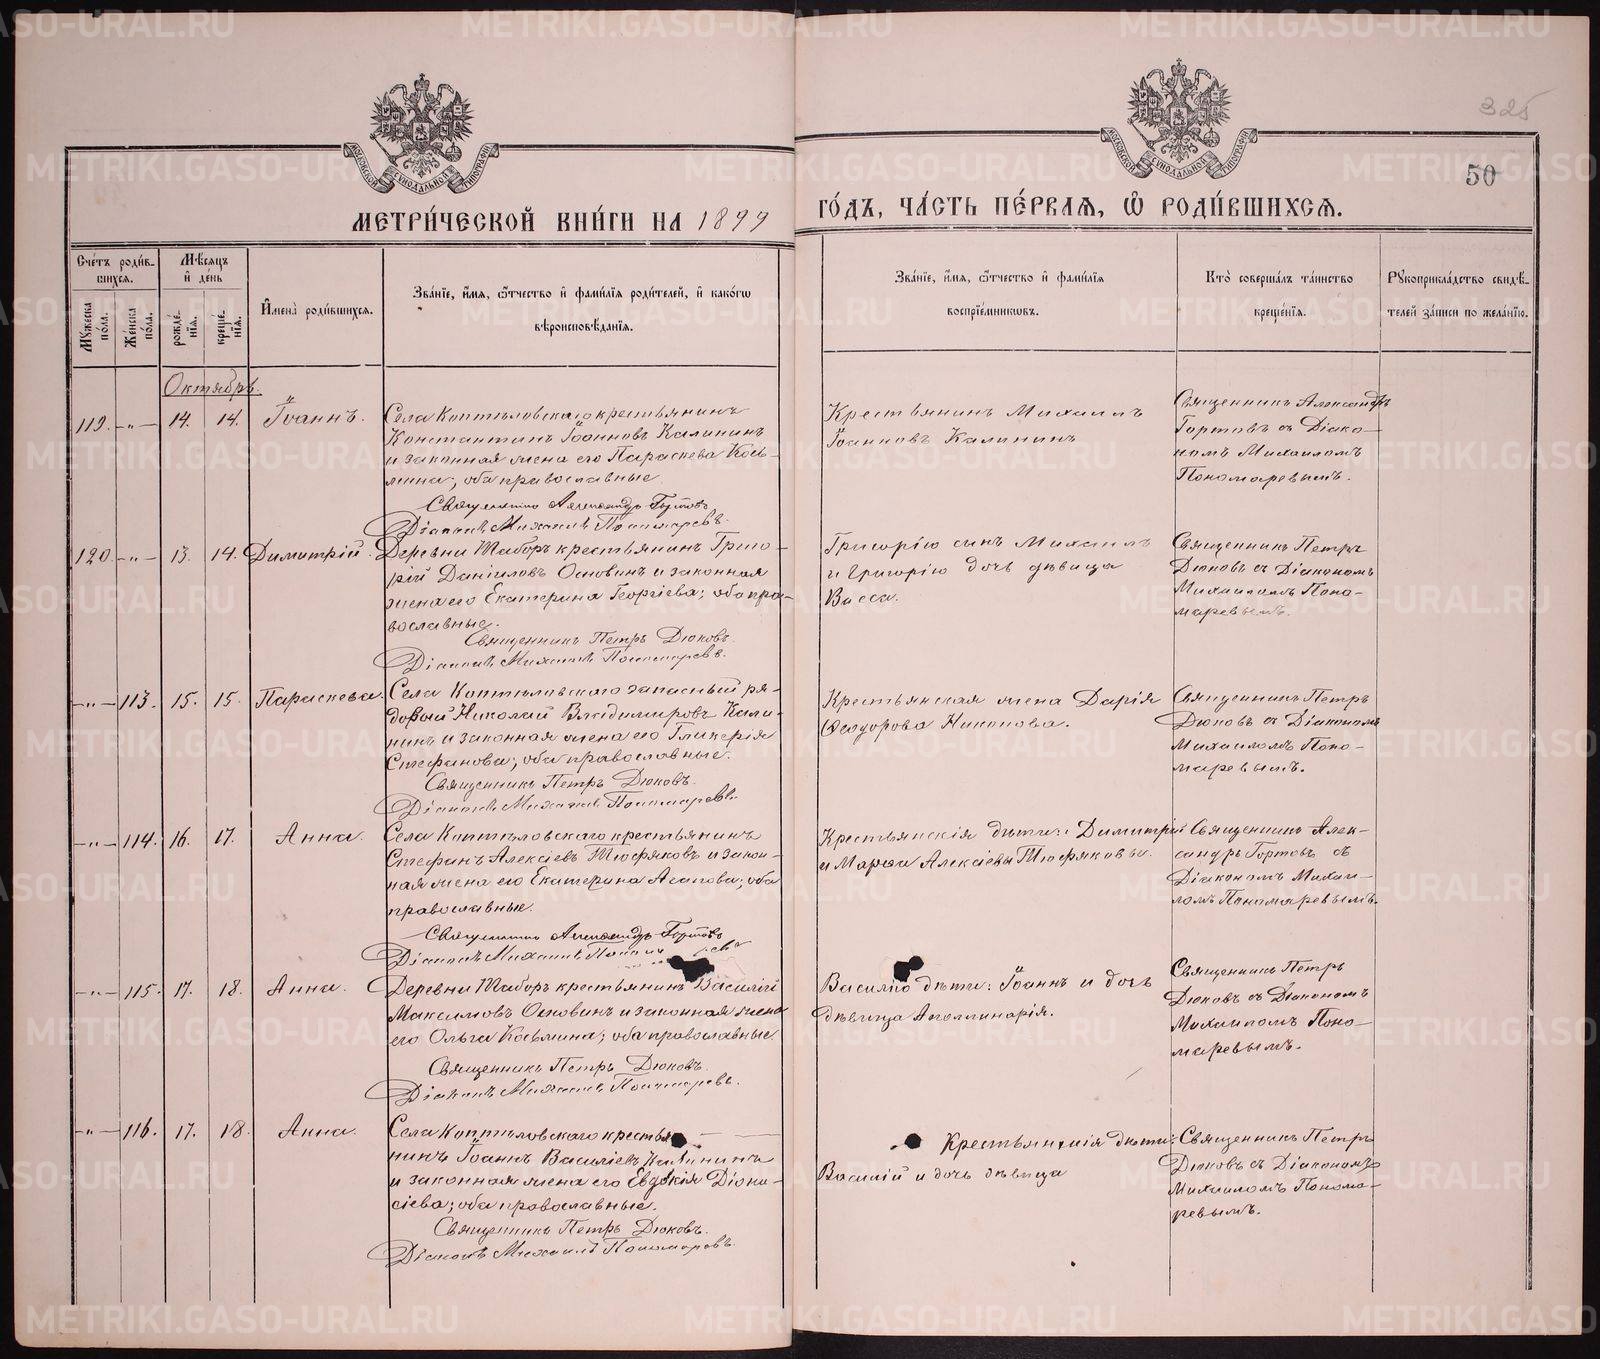 325
50
МЕТРИ́ЧЕСКОЙ КНИ́ГИ НА 1899
ГО́ДЪ, ЧА́СТЬ ПЕ́РВАЯ, Ѡ РОДИ́ВШИХСЯ.
Сче́тъ роди́в-
шихся.
Мꙋжеска
по́ла.
Же́нска
по́ла.
Мѣ́сяцъ
и҆ де́нь
рожде́-
нїя.
креще́-
нїя.
И҆мена̀ роди́вшихся.
Зва́нїе, и҆́мя, ѻ҆́тчество и҆ фами́лїя роди́телей, и҆ како́гѡ
вѣроисповѣ́данїя.
Зва́нїе, и҆́мя, ѻ҆́тчество и҆ фами́лїя
воспрїе́мниковъ.
Кто̀ соверша́лъ та́инство
креще́нїя.
Рꙋкоприкла́дство свидѣ́-
телей за́писи по жела́нїю.
Октябрь.
119. -„- 14. 14. Іоаннъ.
Села Коптѣловскаго крестьянинъ
Константинъ Іоанновъ Калининъ
и законная жена его Параскева Кось-
мина; оба православные.
Священникъ Александръ Гортовъ
Діаконъ Михаилъ Пономаревъ.
Крестьянинъ Михаилъ
Іоанновъ Калининъ
Священникъ Александръ
Гортовъ съ Діако-
номъ Михаиломъ
Пономаревымъ.
120. -„- 13. 14. Димитрій.
Деревни Таборъ крестьянинъ Григо-
рій Даніиловъ Основинъ и законная
жена его Екатерина Георгіева; оба пра-
вославные.
Священникъ Петръ Дюковъ.
Діаконъ Михаилъ Пономаревъ.
Григорію сынъ Михаилъ
и Григорію дочь дѣвица
Васса.
Священникъ Петръ
Дюковъ съ Діакономъ
Михаиломъ Поно-
маревымъ.
-„- 113. 15. 15. Параскева.
Села Коптѣловскаго запасный ря-
довый Николай Владимировъ Кали-
нинъ и законная жена его Гликерія
Стефанова; оба православные.
Священникъ Петръ Дюковъ.
Діаконъ Михаилъ Пономаревъ.
Крестьянская жена Дарія
Ѳеодорова Никонова.
Священникъ Петръ
Дюковъ съ Діакономъ
Михаиломъ Поно-
маревымъ.
-„- 114. 16. 17. Анна.
Села Коптѣловскаго крестьянинъ
Стефанъ Алексіевъ Тюфяковъ и закон-
ная жена его Екатерина Агапова; оба
православные.
Священникъ Александръ Гортовъ
Діаконъ Михаилъ
Крестьянскія дѣти: Димитрій
и Марѳа Алексіевы Тюфяковы.
Священникъ Алек-
сандръ Гортовъ съ
Діакономъ Михаи-
ломъ Пономаревымъ.
-„- 115. 17. 18. Анна.
Деревни Таборъ крестьянинъ Василій
Максимовъ Основинъ и законная жена
его Ольга Косьмина; оба православные.
Священникъ Петръ Дюковъ.
Діаконъ Михаилъ Пономаревъ.
Василію дѣти: Іоаннъ и дочь
дѣвица Аполлинарія.
Священникъ Петръ
Дюковъ съ Діакономъ
Михаиломъ Поно-
маревымъ.
-„- 116. 17. 18. Анна.
Села Коптѣловскаго крестья-
нинъ Іоаннъ Василіевъ Калининъ
и законная жена его Евдокія Діони-
сіева; оба православные.
Священникъ Петръ Дюковъ.
Діаконъ Михаилъ Пономаревъ.
Крестьянскія дѣти:
Василій и дочь дѣвица
Священникъ Петръ
Дюковъ съ Діакономъ
Михаиломъ Понома-
ревымъ.
METRIKI.GASO-URAL.RU